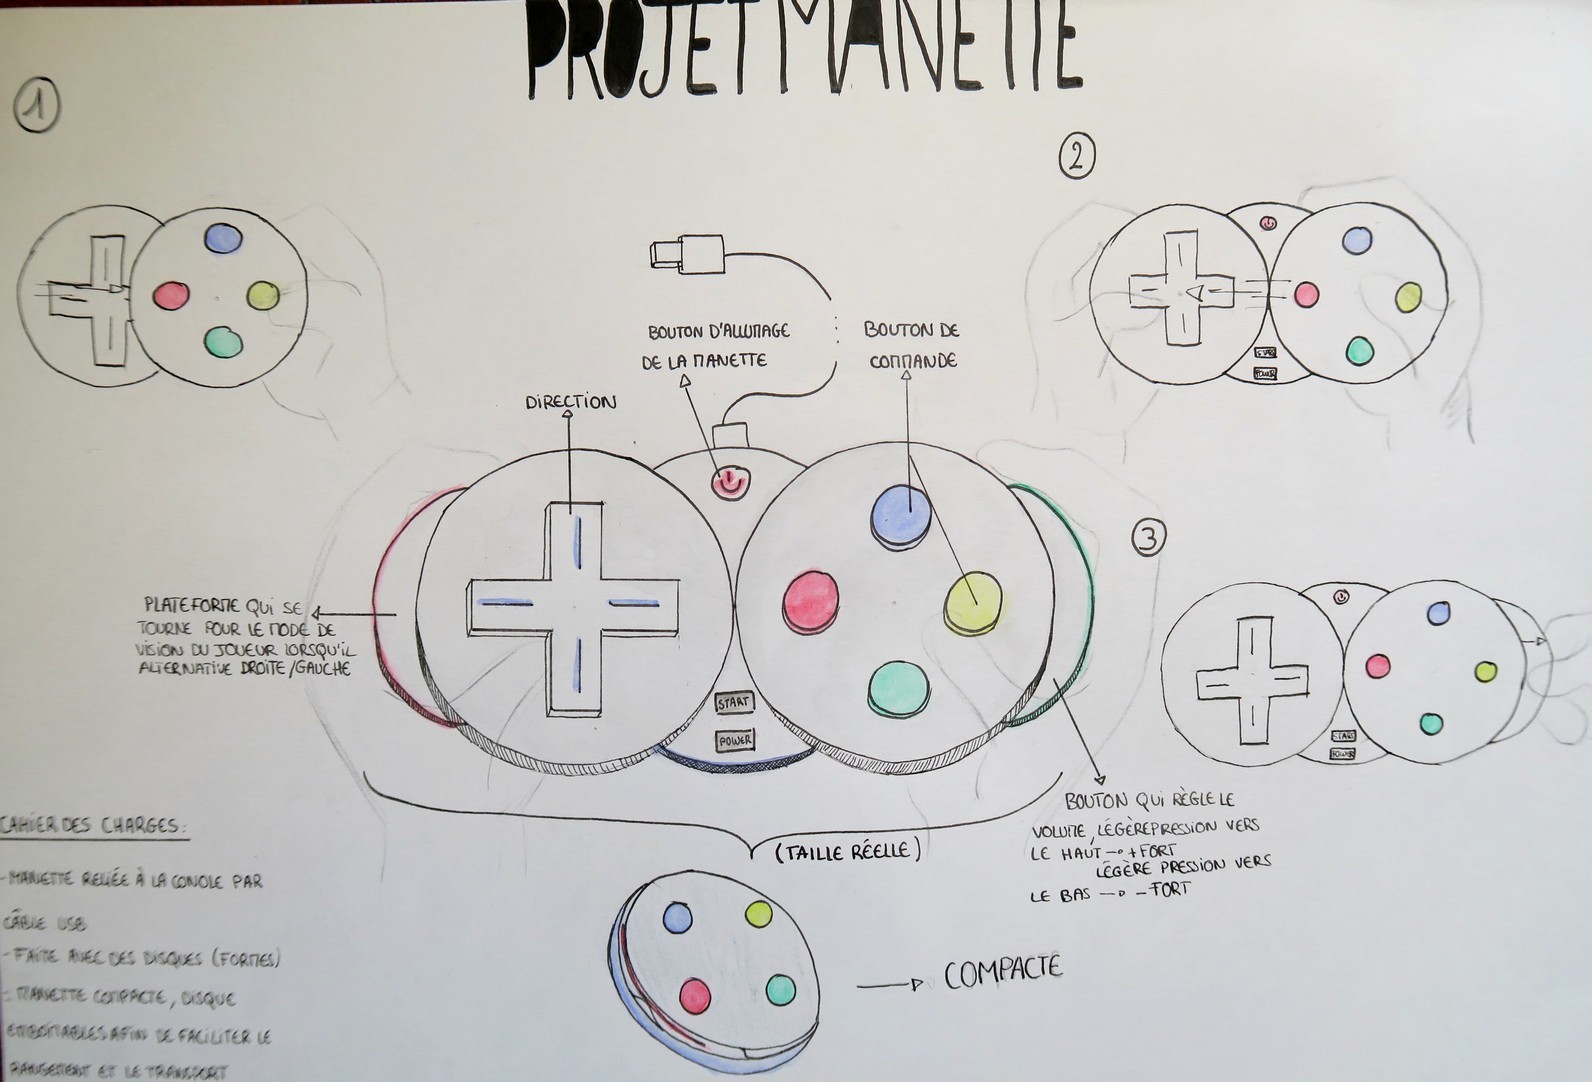 PROJET MANETTE
1
2
BOUTON D'ALLUMAGE
DE LA MANETTE
BOUTON DE
COMMANDE
START
POWER
DIRECTION
3
PLATEFORME QUI SE
TOURNE POUR LE MODE DE
VISION DU JOUEUR LORSQU'IL
ALTERNATIVE DROITE/GAUCHE
START
POWER
START
POWER
BOUTON QUI RÈGLE LE
VOLUME, LÉGÈRE PRESSION VERS
LE HAUT → + FORT
LÉGÈRE PRESSION VERS
LE BAS → - FORT
(TAILLE RÉELLE)
COMPACTE
CAHIER DES CHARGES:
- MANETTE RELIÉE À LA CONOLE PAR
CÂBLE USB
- FAITE AVEC DES DISQUES (FORMES)
- MANETTE COMPACTE, DISQUE
EMBOÎTABLES AFIN DE FACILITER LE
RANGEMENT ET LE TRANSPORT